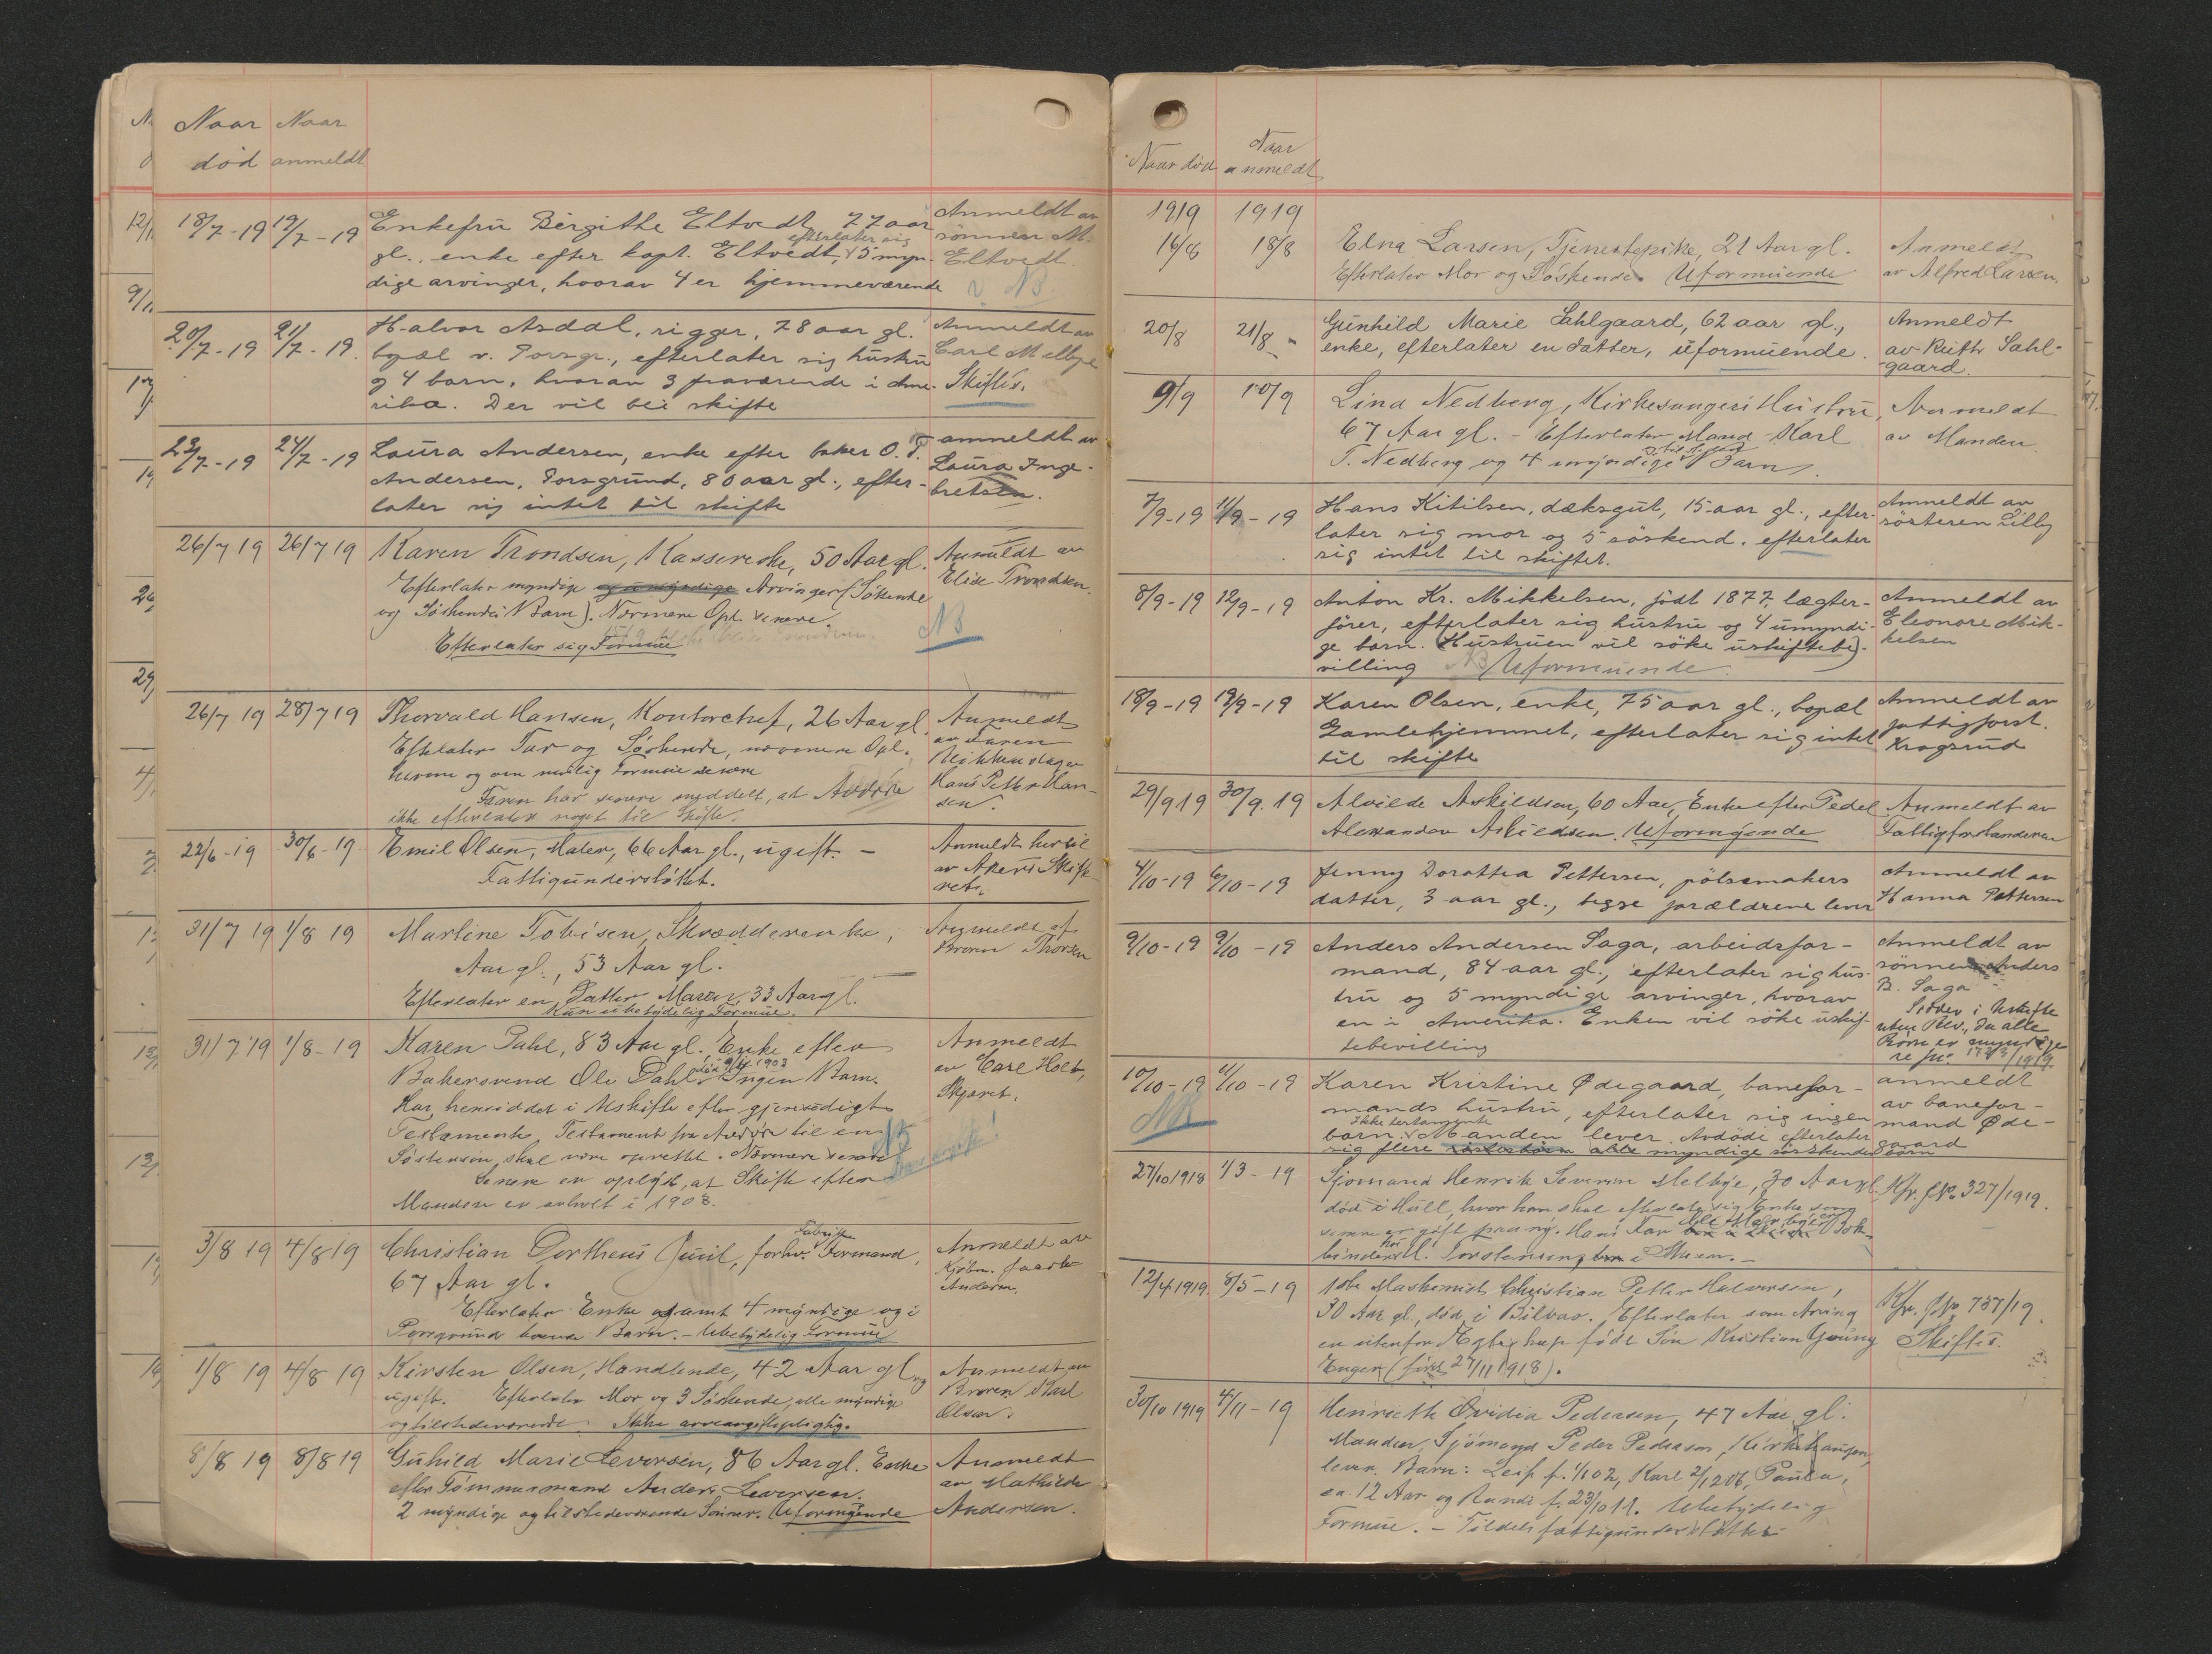 Naar Naar
død anmeldt
18/7-19 19/7-19 Enkefru Birgithe Eltvedt, 77 aar
gl., enke efter kapt. Eltvedt, efterlater sig 5 myn-
dige arvinger, hvorav 4 er hjemmeværende
Anmeldt av
sönnen M.
Eltvedt.
NB.
20/7-19 21/7-19. Halvor Asdal, rigger, 78 aar gl.
bopæl v. Porsgr., efterlater sig hustru
og 4 barn, hvorav 3 fraværende i Ame-
rika. Der vil bli skifte
Anmeldt av
Carl Melbye
Skiftes.
23/7-19 24/7-19 Laura Andersen, enke efter baker O. T.
Andersen, Porsgrund, 80 aar gl., efter-
later sig intet til skifte
anmeldt av
Laura Inge-
bretsen.
26/7 19 26/7 19 Karen Trondsen, Kassererske, 50 Aar gl.
Efterlater myndige og umyndige Arvinger (Söskende
og Söskendes Barn). Nærmere Opl. senere.
Efterlater sig Formue
Anmeldt av
Elise Trondsen.
NB
26/7 19 28/7 19 Thorvald Hansen, Kontorchef, 26 Aar gl.
Efterlater Far og Söskende, nærmere Opl.
herom og om mulig Formue senere
Faren har senere meddelt, at Avdöde
ikke efterlater noget til Skifte.
Anmeldt
av Faren
Blikkenslager
Hans Petter Han-
sen.
22/6-19 30/6-19 Emil Olsen, Maler, 66 Aar gl., ugift. -
Fattigunderstöttet.
Anmeldt hertil
av Akers Skifte-
ret.
31/7 19 1/8 19 Martine Tobisen, Skrædderenke,
Aar gl., 53 Aar gl.
Efterlater en Datter Maren, 33 Aar gl.
Kun ubetydelig Formue.
Anmeldt af
Broren Thorsen
31/7 19 1/8-19 Karen Dahl, 83 Aar gl., Enke efter
Bakersvend Ole Dahl, Ingen Barn.
Har hensiddet i Uskifte efter gjensidigt
Testamente. Testament fra Avdöde til en
Söstersön skal være oprettet. Nærmere senere
Senere er oplyst, at Skifte efter
Manden er avholt i 1903.
Anmeldt
av Carl Holt,
Skjæret.
NB
3/8 19 4/8 19 Christian Dortheus Juul, forhv. Fabrikk Formand,
67 Aar gl.
Efterlater Enke og samt 4 myndige og i
Porsgrund boende Barn. - Ubetydelig Formue
Anmeldt av
Kjöbm. Jaarle
Andersen.
1/8 19 4/8 19 Kirsten Olsen, Handlende, 42 Aar gl. og
ugift. Efterlater Mor og 3 Söskende, alle myndige
og tilstedeværende. Ikke arveavgiftspligtig.
Anmeldt av
Broren Karl
Olsen.
8/8 19 8/8 19 Guhild Marie Leversen, 86 Aar gl. Enke
efter Tömmermand Anders Leversen.
2 myndige og tilstedeværende Sönner. Uformuende
Anmeldt
av Mathilde
Andersen.
Naar død Naar anmeldt
1919 1919
16/8 18/8 Elna Larsen, Tjenestepike, 21 Aar gl.
Efterlater Mor og Söskende. Uformuende
Anmeldt
av Alfred Larsen.
20/8 21/8 - Gunhild Marie Sahlgaard, 62 aar gl.,
enke, efterlater en datter, uformuende.
Anmeldt
av Ruth Sahl-
gaard.
9/9 10/9 Lina Nedberg, Kirkesangers Hustru,
67 Aar gl. - Efterlater Mand Karl
T. Nedberg og 4 myndige Barn.
Anmeldt
av Manden
7/9-19 11/9-19 Hans Kitilsen, dæksgut, 15 aar gl., efter-
later sig mor og 5 söskend. efterlater
sig intet til skiftet.
Anmeldt av
sösteren Lilly
8/9-19 12/9-19 Anton Kr. Mikkelsen, födt 1877, lægter-
förer, efterlater sig hustru og 4 umyndi-
ge barn. (Hustruen vil söke uskiftebe-
villing) NB Uformuende.
Anmeldt av
Eleonore Mik-
kelsen
18/9-19 19/9-19 Karen Olsen, enke, 75 aar gl., bopæl
Gamlehjemmet, efterlater sig intet
til skifte
Anmeldt av
fattigforst.
Krogsrud
29/9 19 30/9.19 Alvilde Askildsen, 60 Aar, Enke efter Pedel
Alexander Askildsen. Uformuende
Anmeldt av
Fattigforstanderen
4/10-19 6/10-19 Jenny Dorothea Pettersen, pölsemakers
datter, 3 aar gl., begge forældrene lever
Anmeldt av
Hanna Pettersen
9/10-19 9/10-19 Anders Andersen Saga, arbeidsfor-
mand, 84 aar gl., efterlater sig hus-
tru og 5 myndige arvinger, hvorav
en i Amerika. Enken vil söke uskif-
tebevilling
Anmeldt av
sönnen Anders
B. Saga
Sidder i Uskifte
uten Bev., da alle
Barn er myndige
10/10-19 11/10-19 Karen Kristine Ødegaard, banefor-
mands hustru, efterlater sig ingen
barn. Ikke testamente Manden lever. Avdöde efterlater
sig flere alle myndige söskendebarn
anmeldt
av banefor-
mand Øde-
gaard
NB
27/10 1918 1/3-19 Sjömand Henrik Severin Melbye, 30 Aar gl.
död i Hull, hvor han skal efterlate sig Enke som
senere er gift paa ny. Hans Far
binder M. Torstensen i Skien. -
Kfr. JNo. 327/1919.
12/4 1919. 8/5-19 1ste Maskinist Christian Petter Halvorsen,
30 Aar gl., död i Bilbao. Efterlater som Arving
en utenfor Ægteskap födt Sön Kristian Young
Enger (född 27/11 1918).
Kfr. JNo 737/19.
Skiftes.
30/10 1919 4/11-19 Henriette Ovidia Pedersen, 47 Aar gl.
Manden, Sjömand Peder Pedersen, Kirkehaugen,
lever. Barn: Leif f. 1/10 02, Karl 2/12 06, Paula,
ca. 12 Aar og Randi f. 23/10 11. Ubetydelig
Formue. - Tildels fattigunderstöttet